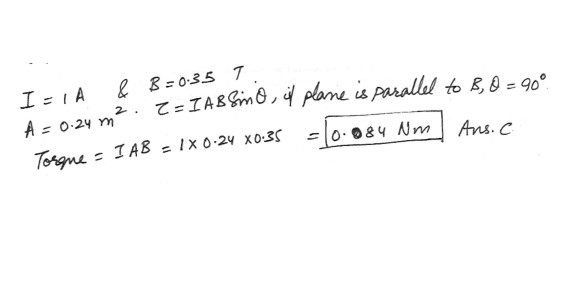 I = 1 A & B = 0.35 T.
A = 0.24 m². τ = IAB Sinθ, if plane is parallel to B, θ = 90°
Torque = IAB = 1 x 0.24 x 0.35 = 0.084 Nm Ans. C